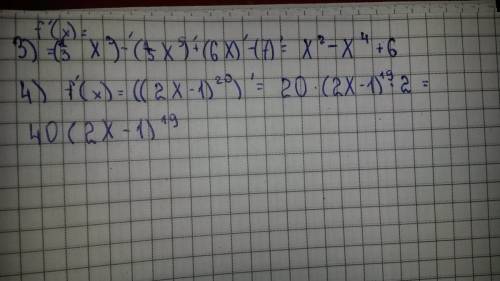 f'(x)=
3) =(1/3 x³)'-(1/5 x⁵)'+(6x)'-(7)'= x²-x⁴+6
4) f'(x)=((2x-1)²⁰)'= 20·(2x-1)¹⁹·2=
40(2x-1)¹⁹